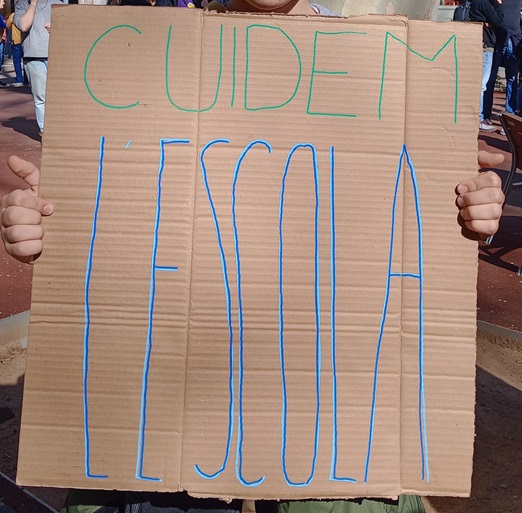 CUIDEM
L'ESCOLA